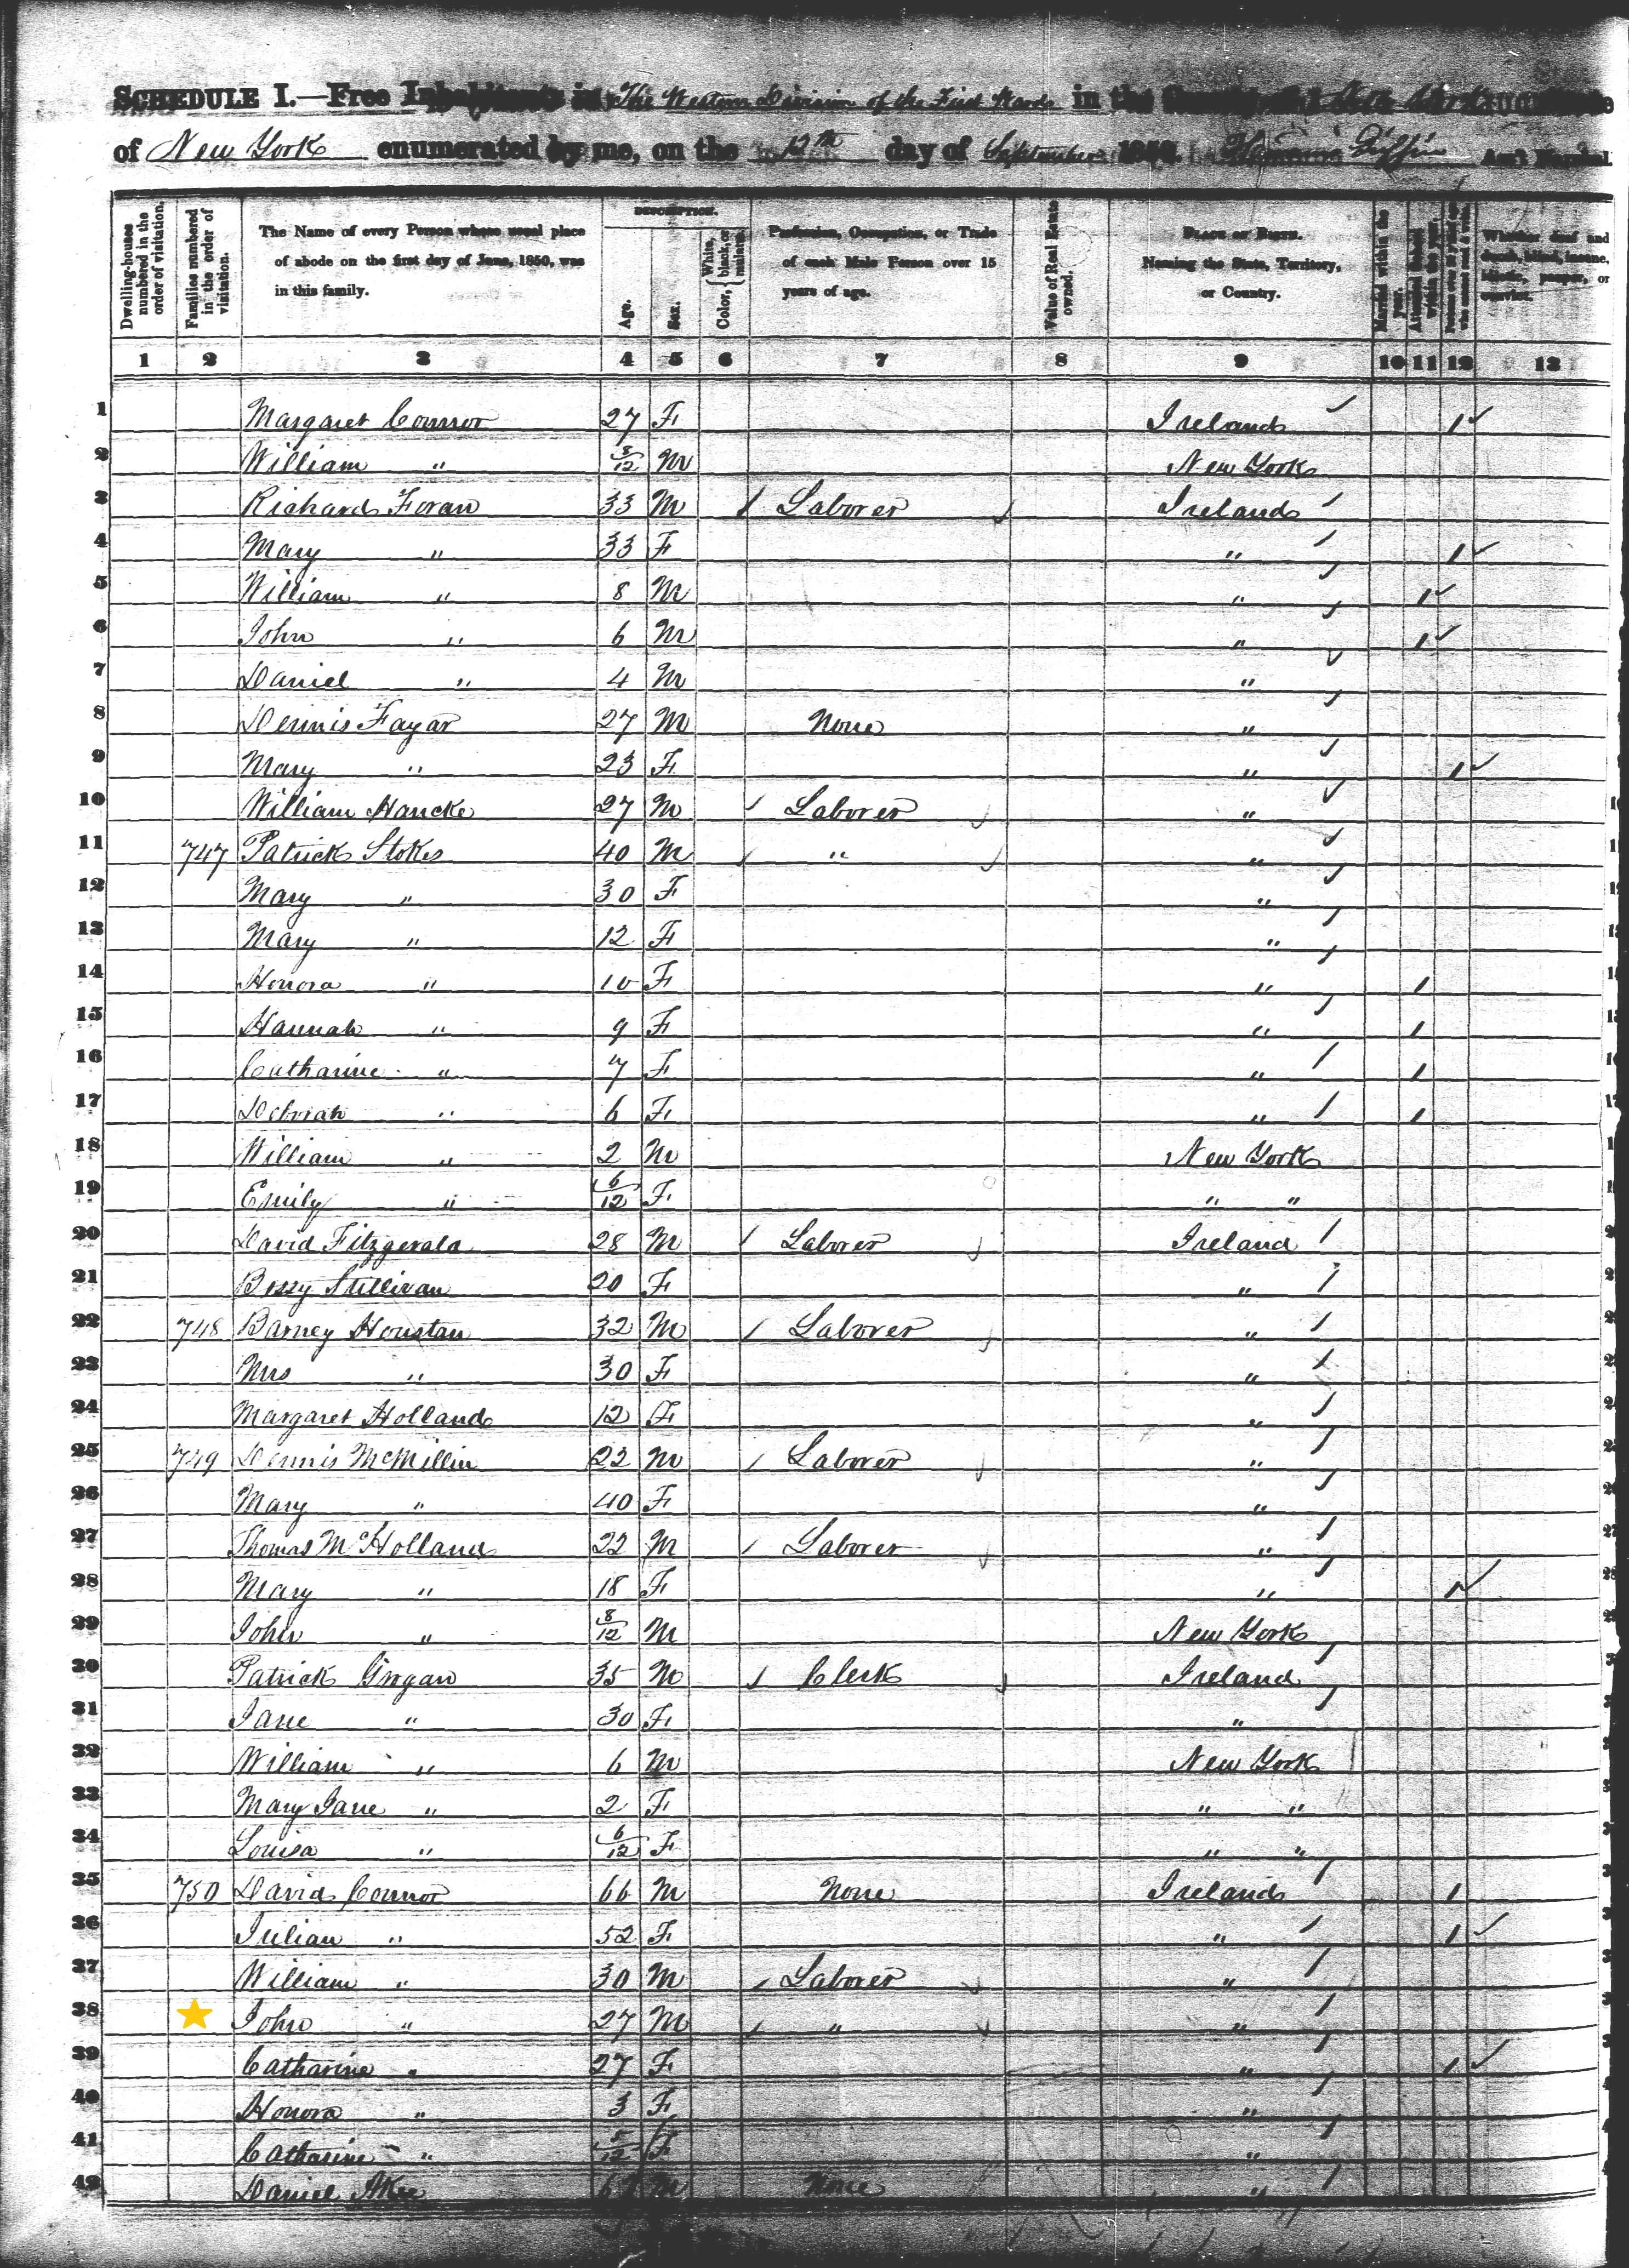 SCHEDULE I.—Free Inhabitants in The Western Division of the First Ward in the County of New York State
of New York enumerated by me, on the 12th day of September 1850. Ass't Marshal.
Dwelling-houses numbered in the order of visitation.
Families numbered in the order of visitation.
The Name of every Person whose usual place of abode on the first day of June, 1850, was in this family.
DESCRIPTION.
Age.
Sex.
Color, White, black, or mulatto.
Profession, Occupation, or Trade of each Male Person over 15 years of age.
Value of Real Estate owned.
PLACE OF BIRTH. Naming the State, Territory, or Country.
Married within the year.
Attended School within the year.
Persons over 20 y'rs of age who cannot read & write.
Whether deaf and dumb, blind, insane, idiotic, pauper, or convict.
1 2 3 4 5 6 7 8 9 10 11 12 13
1 Margaret Connor 27 F Ireland 1
2 William " 8/12 M New York
3 Richard Foran 33 M Laborer Ireland
4 Mary " 33 F " 1
5 William " 8 M " 1
6 John " 6 M " 1
7 Daniel " 4 M "
8 Dennis Fayar 27 M None "
9 Mary " 23 F " 1
10 William Hancke 27 M Laborer "
11 747 Patrick Stokes 40 M " "
12 Mary " 30 F "
13 Mary " 12 F "
14 Honora " 10 F " 1
15 Hannah " 9 F " 1
16 Catharine " 7 F " 1
17 Debriah " 6 F " 1
18 William " 2 M New York
19 Emily " 6/12 F " "
20 David Fitzgerald 28 M Laborer Ireland
21 Bessy Sullivan 20 F "
22 748 Barney Houstan 32 M Laborer "
23 Mrs " 30 F "
24 Margaret Holland 12 F "
25 749 Dennis McMillin 22 M Laborer "
26 Mary " 40 F "
27 Thomas McHolland 22 M Laborer "
28 Mary " 18 F " 1
29 John " 8/12 M New York
30 Patrick Grogan 35 M Clerk Ireland
31 Jane " 30 F "
32 William " 6 M New York
33 Mary Jane " 2 F " "
34 Louisa " 6/12 F " "
35 750 David Connor 66 M None Ireland 1
36 Julian " 52 F " 1
37 William " 30 M Laborer "
38 John " 27 M " "
39 Catharine " 27 F " 1
40 Honora " 3 F "
41 Catharine " 5/12 F "
42 Daniel Akee M None "